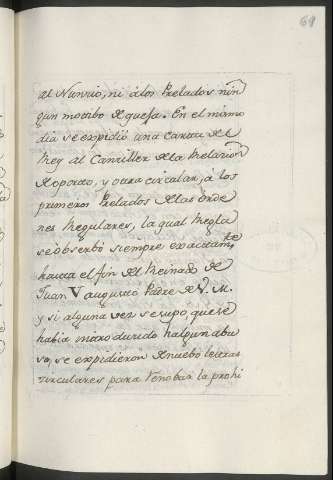 69
al Nunzio, ni á los Prelados nin
gun motibo de queja. En el mismo
dia se expidió una Carta del
Rey al Canziller de la Relazion
de oporto, y otra circular, á los
primeros Prelados de las Orde
nes Regulares, la qual Regla
se observó siempre exactamte
hasta el fin del Reinado de
Juan V augusto Padre de V. M.
y si alguna vez se supo, que se
habia introducido halgun abu
so, se expidieron de nuebo letras
circulares para renobar la prohi